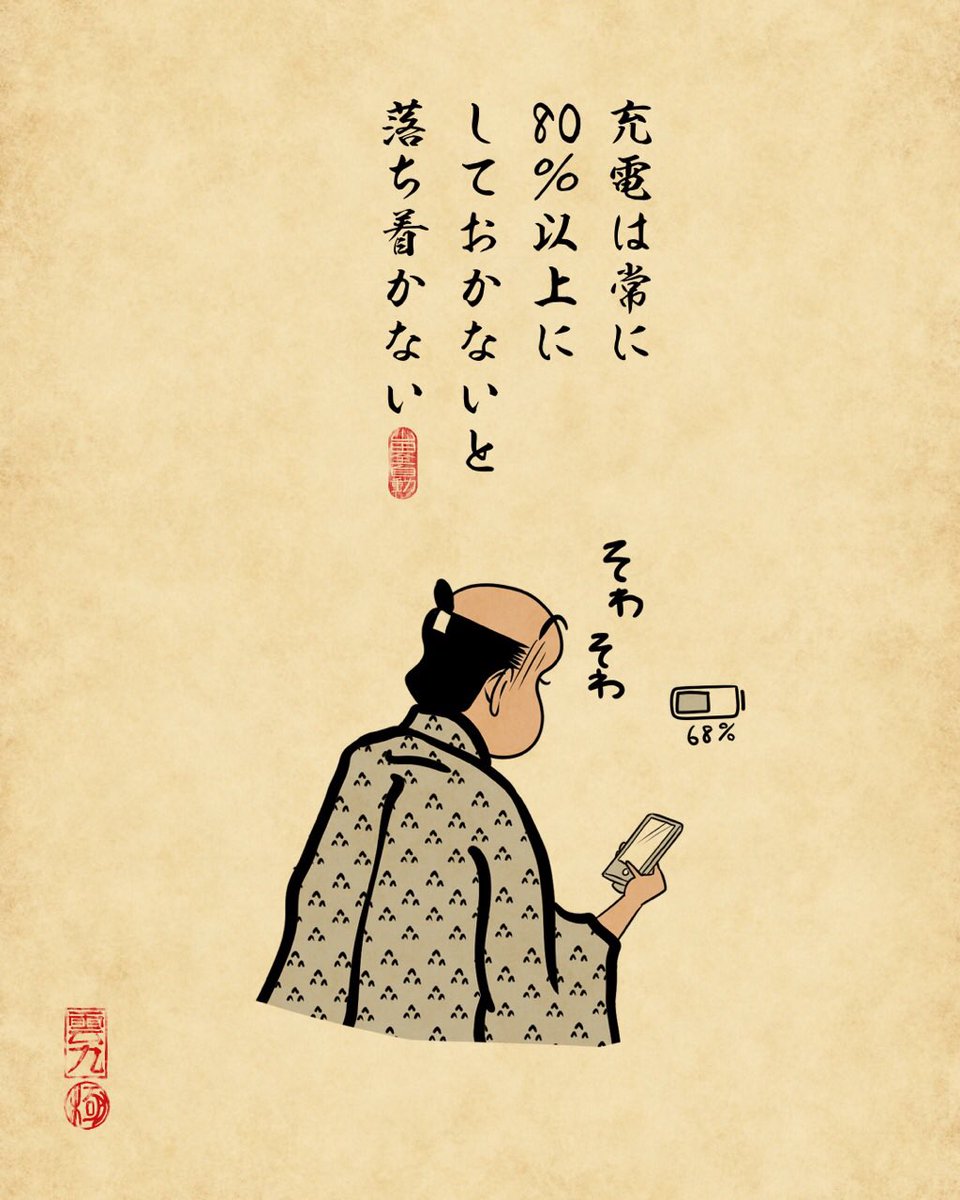 充電は常に
80%以上に
しておかないと
落ち着かない
そわ
そわ
68%